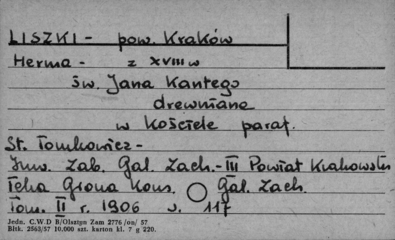 LISZKI - pow. Kraków
Herma - z XVIII w
św. Jana Kantego
drewniana
w Kościele paraf.
St. Tomkowicz -
Inw. Zab. Gal. Zach. - III Powiat Krakowski
Teka Grona Kons. Gal. Zach.
Tom. II r. 1906 s. 117
Jedn. C.W.D B/Olsztyn Zam 2776/on/ 57
Bltk. 2563/57 10.000 szt. karton kl. 7 g 220.